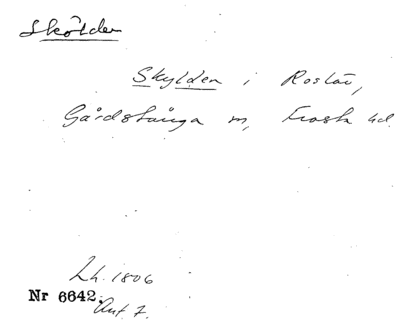 Skölden
Skylden i Roslöv,
Gårdstånga sn, Frosta hd.
Lh. 1806
Nr 6642.
Ant 7.